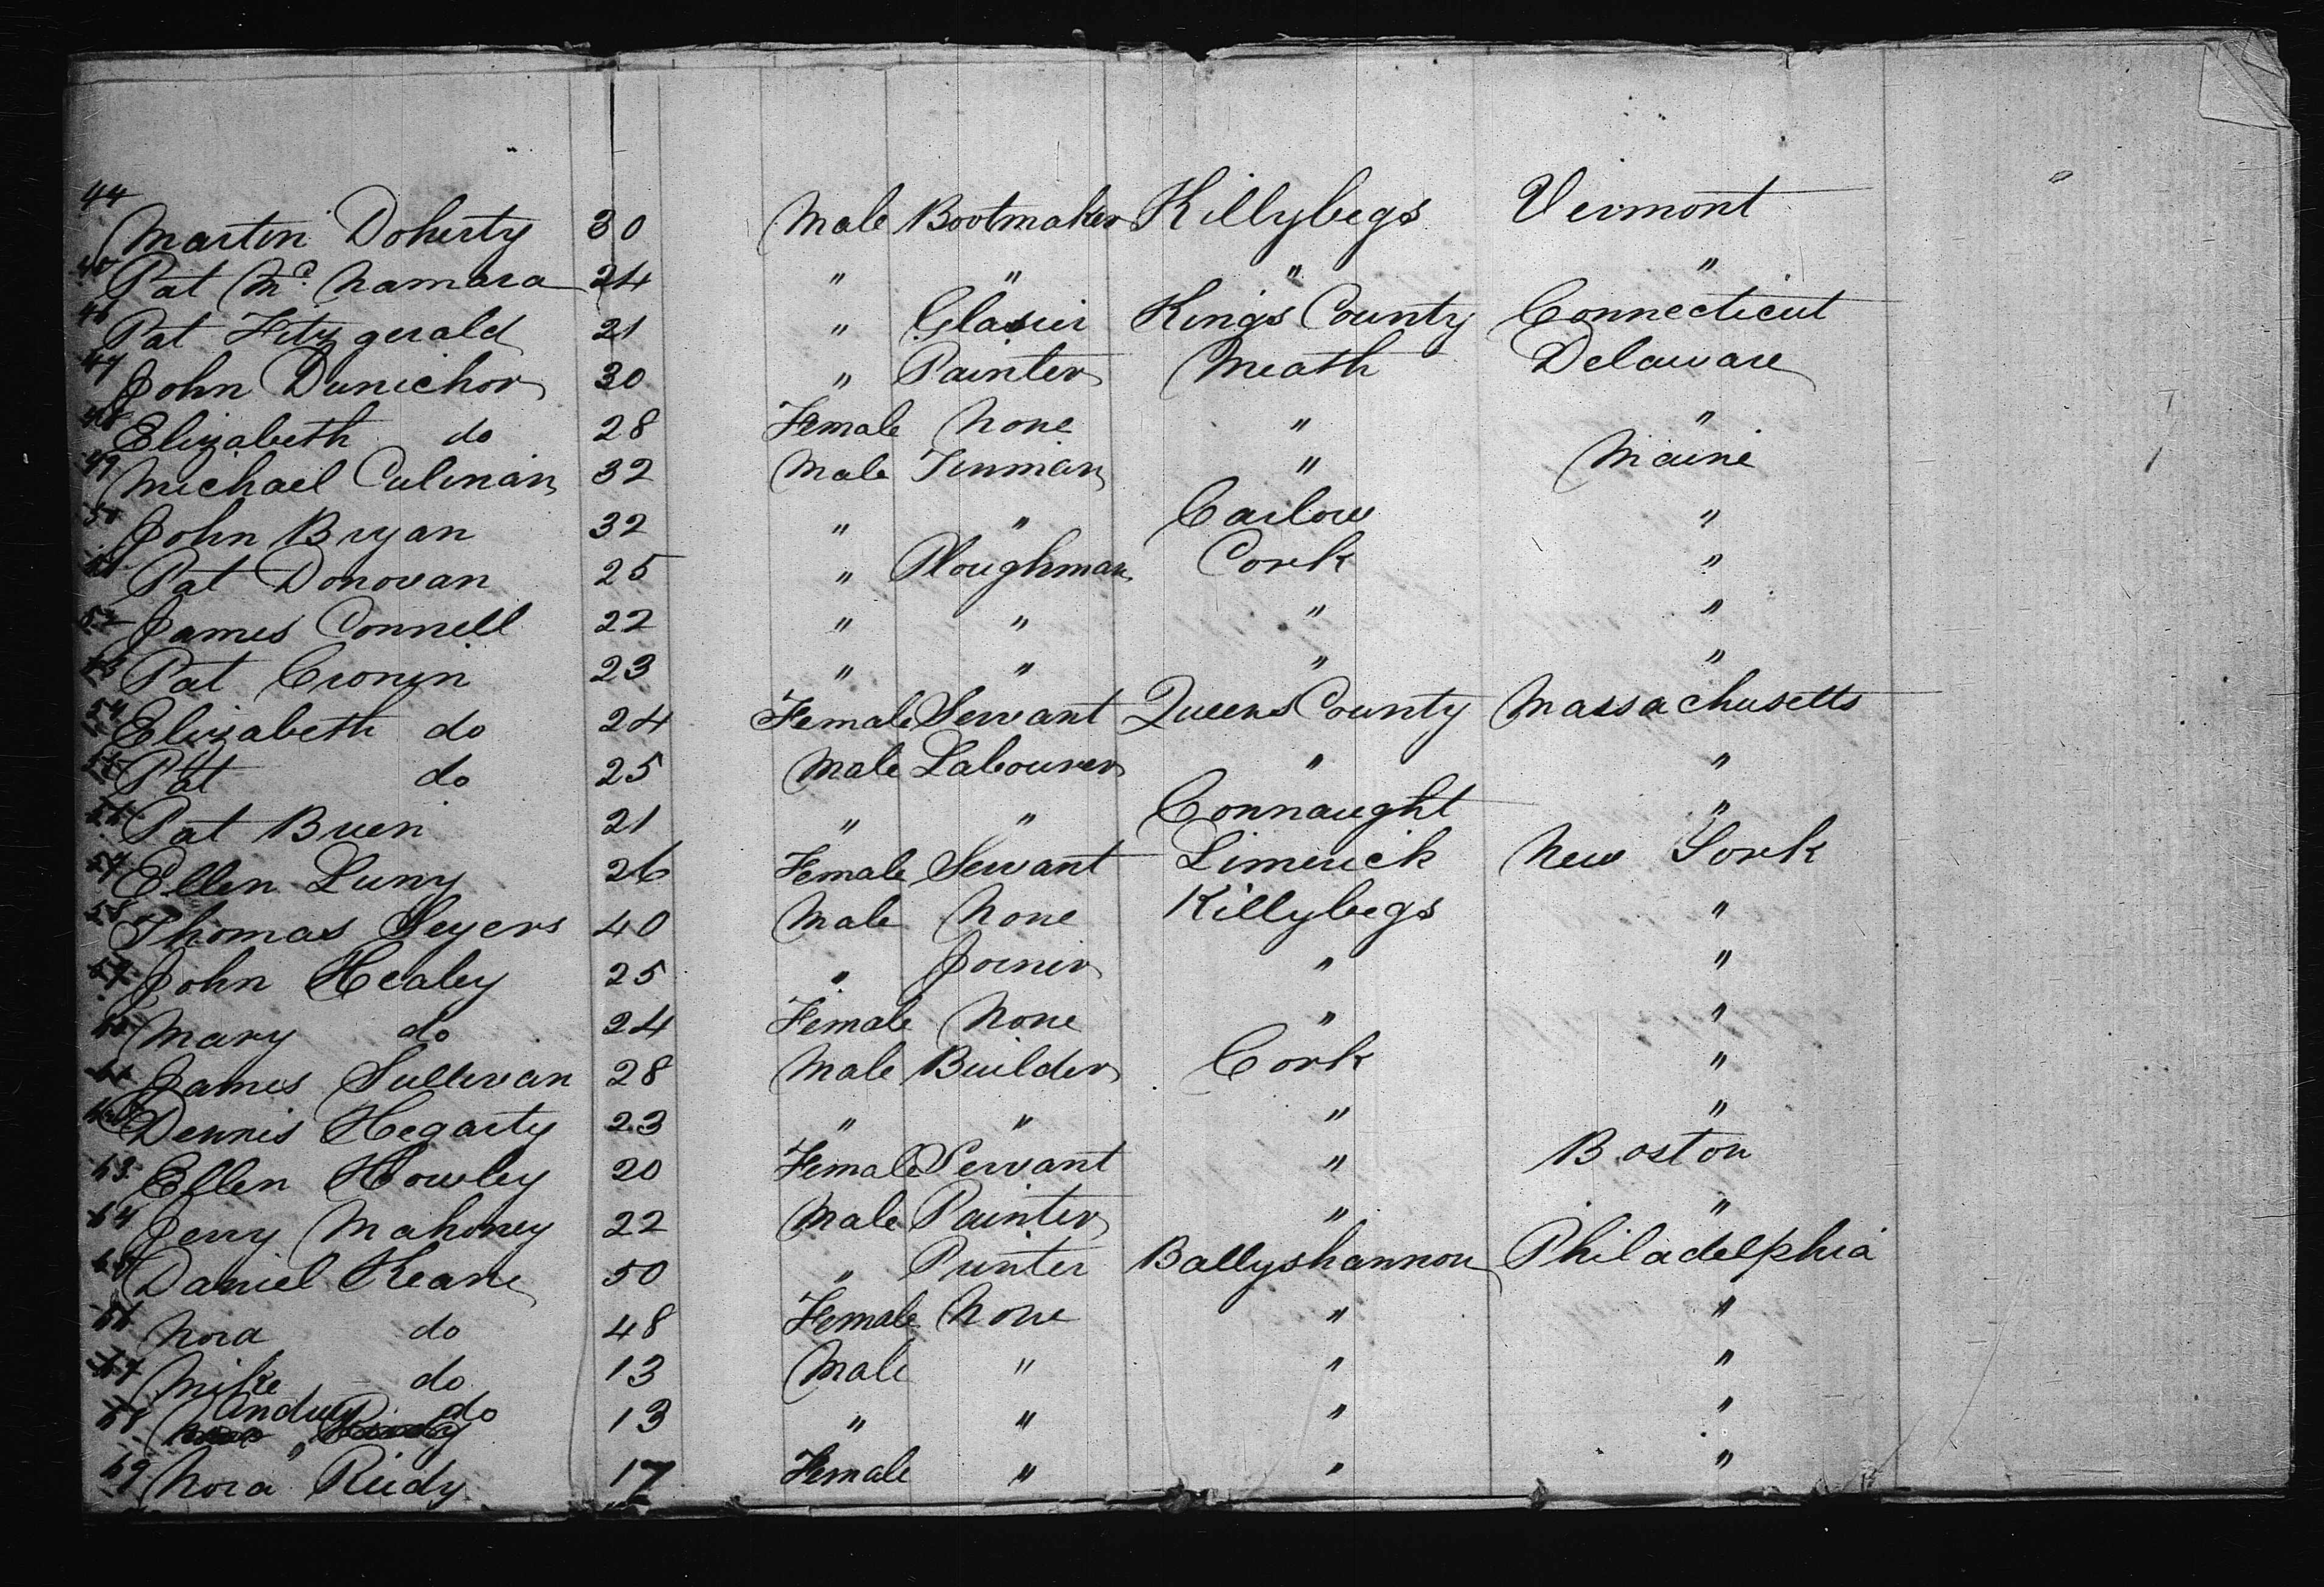 44 Martin Doherty 30 Male Bootmaker Killybegs Vermont
45 Pat McNamara 24 " " " "
46 Pat Fitzgerald 21 " Glasier Kings County Connecticut
47 John Dunichor 30 " Painter Meath Delaware
48 Elizabeth do 28 Female None " "
49 Michael Culinan 32 Male Tinman " Maine
50 John Bryan 32 " " Carlow "
51 Pat Donovan 25 " Ploughman Cork "
52 James Connell 22 " " " "
53 Pat Cronin 23 " " " "
54 Elizabeth do 24 Female Servant Queens County Massachusetts
55 Pat do 25 Male Labourer " "
56 Pat Buen 21 " " Connaught "
57 Ellen Luny 26 Female Servant Limerick New York
58 Thomas Seyers 40 Male None Killybegs "
59 John Healey 25 " Joiner " "
60 Mary do 24 Female None " "
61 James Sullivan 28 Male Builder Cork "
62 Dennis Hegarty 23 " " " "
63 Ellen Howley 20 Female Servant " Boston
64 Jerry Mahoney 22 Male Painter " "
65 Daniel Keane 50 " Printer Ballyshannon Philadelphia
66 Nora do 48 Female None " "
67 Mike do 13 Male " " "
68 Andrew do 13 " " " "
69 Nora Reidy 17 Female " " "